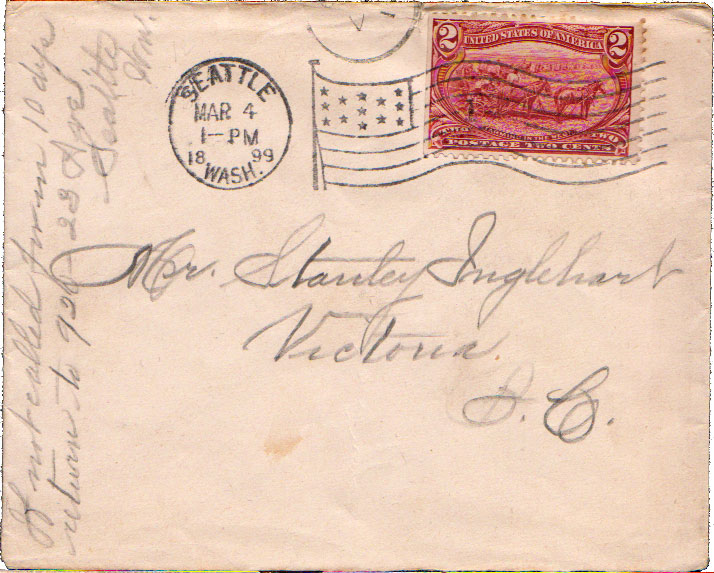 If not called for in 10 dys
return to 926 23 Ave
Seattle
Wn.
SEATTLE
MAR 4
1–PM
18 99
WASH.
2 UNITED STATES OF AMERICA 2
POSTAGE TWO CENTS
Mr. Stanley Inglehart
Victoria
B.C.